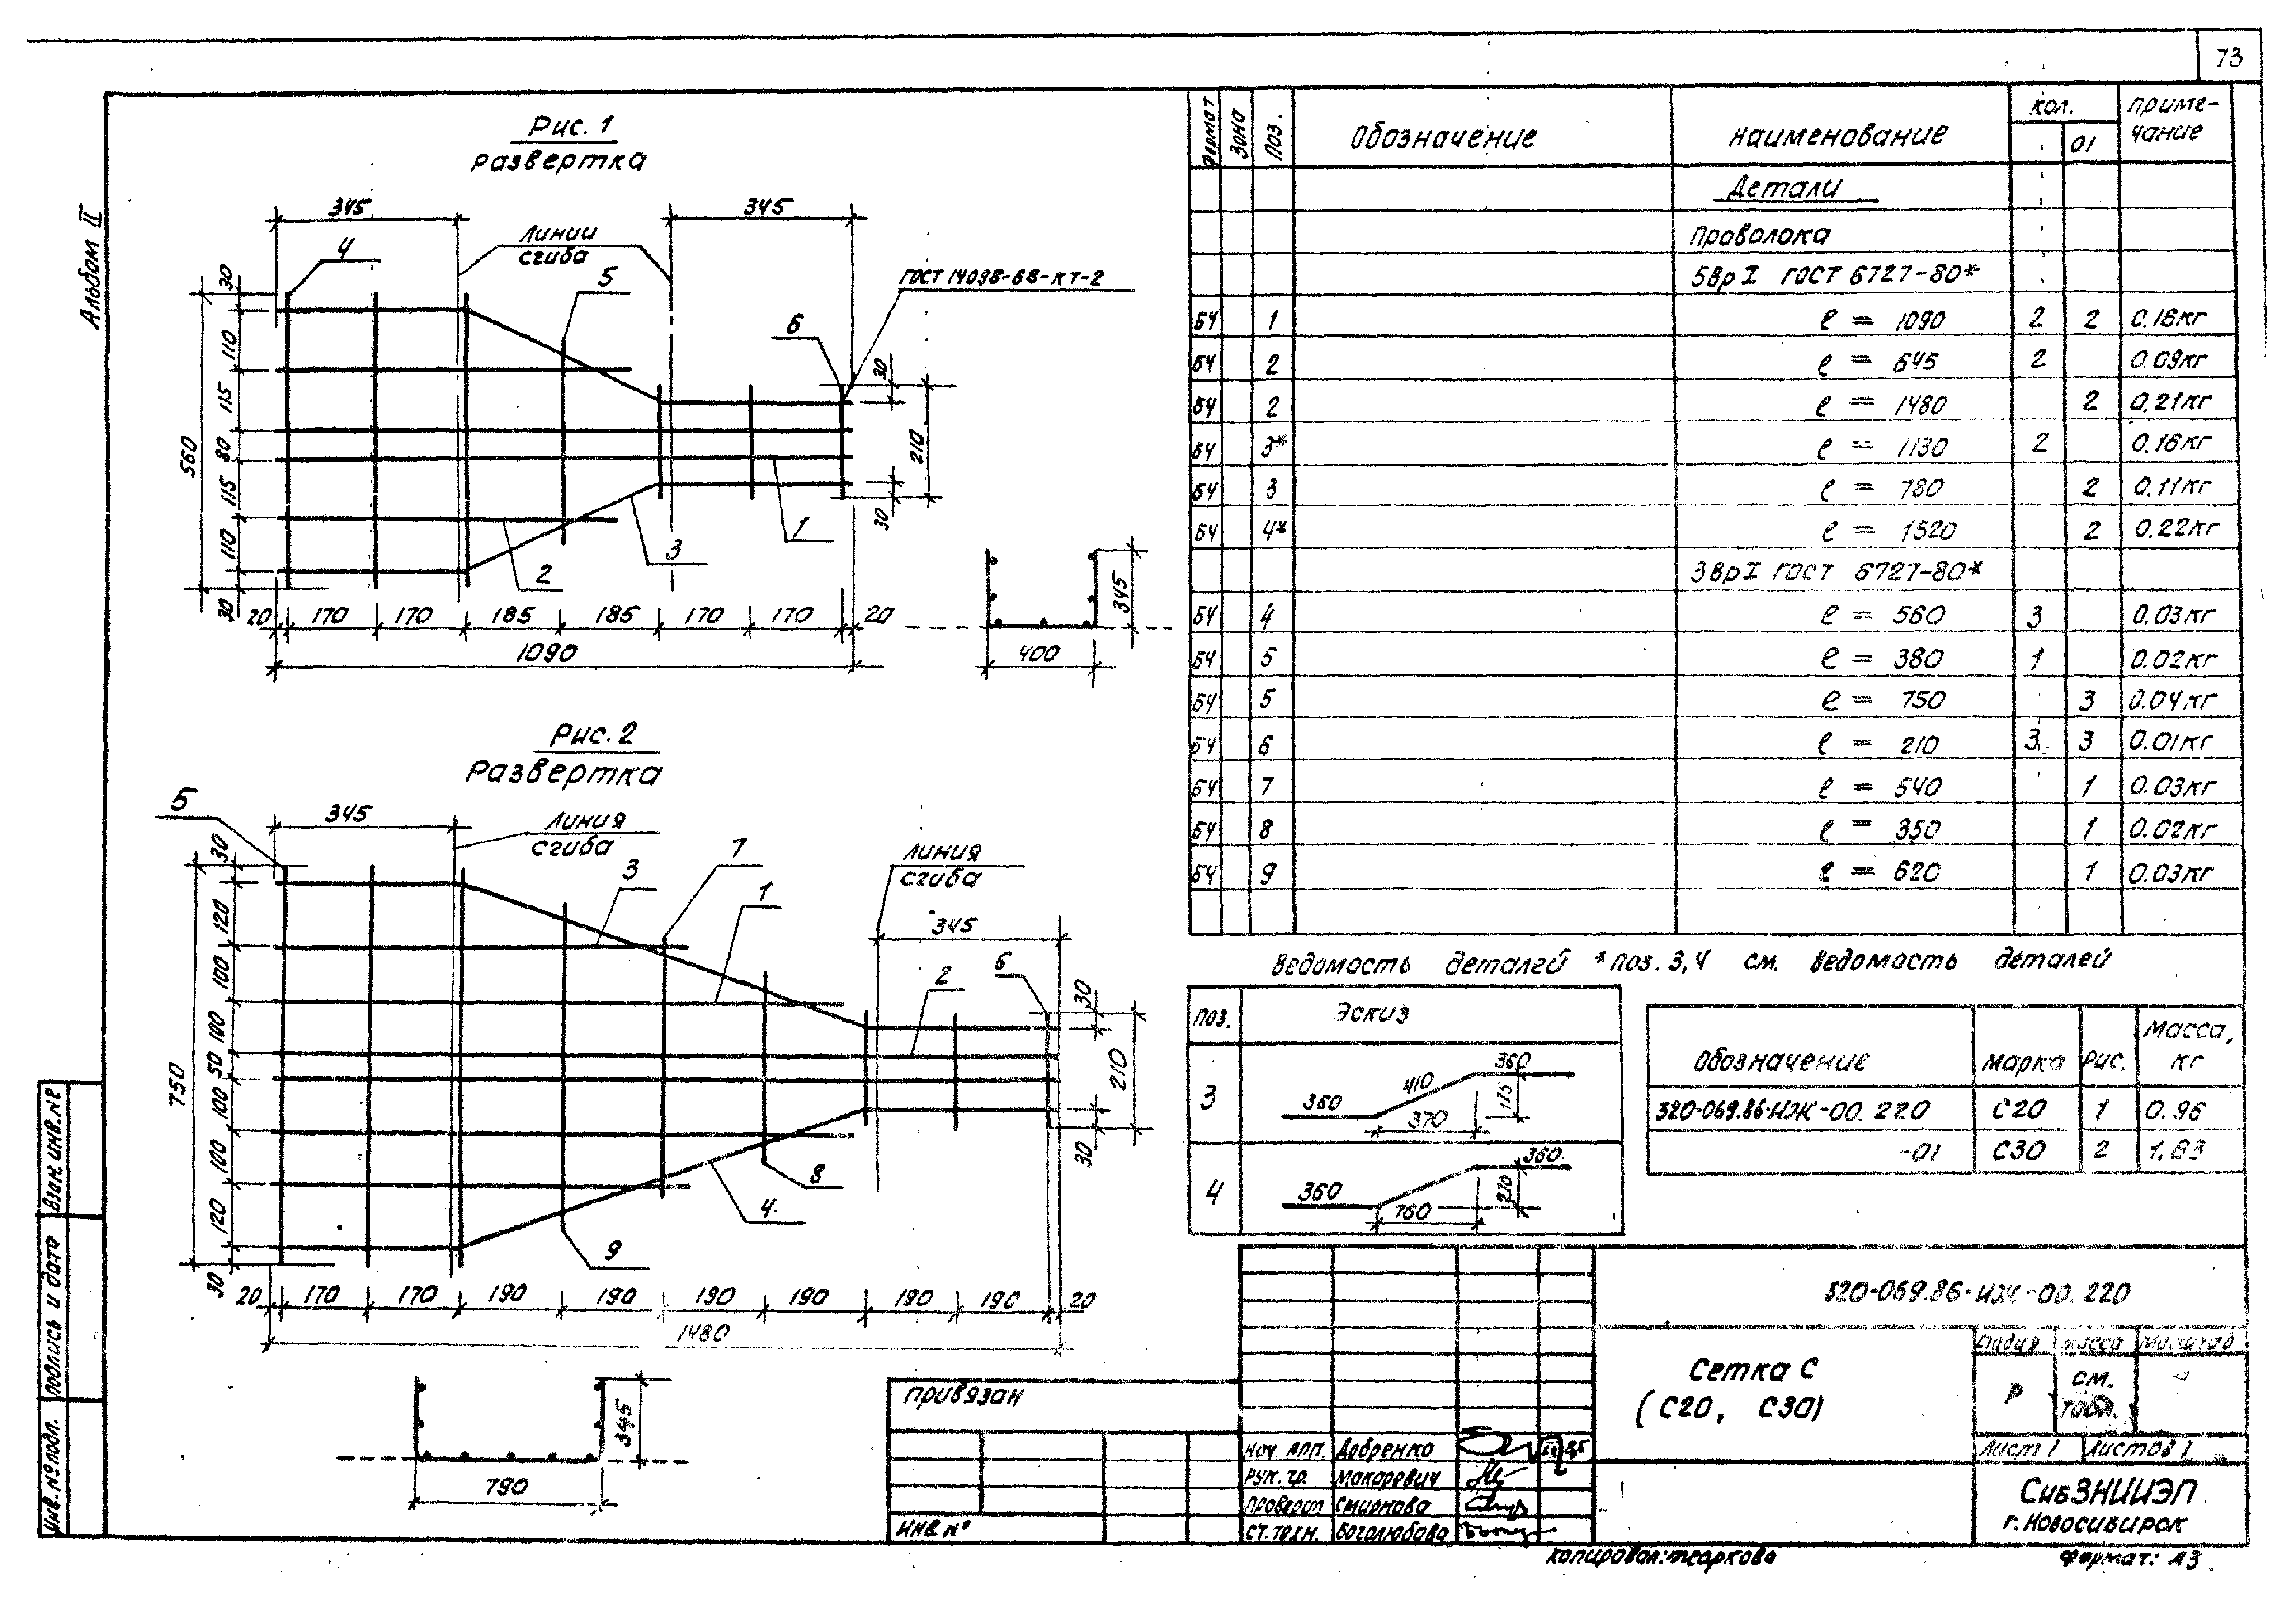 73
Альбом II
Рис. 1
развертка
345
345
Линии
сгиба
4
5
6
ГОСТ 14098-68-КТ-2
30
110
115
80
115
110
30
560
30
210
30
1
2
3
20 170 170 185 185 170 170 20
1090
345
400
Рис. 2
Развертка
5
345
Линия
сгиба
3
7
1
Линия
сгиба
345
2
6
30
120
100
100
50
100
100
120
30
750
30
210
30
8
4
9
20 170 170 190 190 190 190 190 190 20
1480
345
790
Формат Зона Поз. Обозначение Наименование Кол. Приме-
чание
01
Детали
Проволока
5ВрI ГОСТ 6727-80*
БЧ 1 ℓ = 1090 2 2 0.16кг
БЧ 2 ℓ = 645 2 0.09кг
БЧ 2 ℓ = 1480 2 0.21кг
БЧ 3* ℓ = 1130 2 0.16кг
БЧ 3 ℓ = 780 2 0.11кг
БЧ 4* ℓ = 1520 2 0.22кг
3ВрI ГОСТ 6727-80*
БЧ 4 ℓ = 560 3 0.03кг
БЧ 5 ℓ = 380 1 0.02кг
БЧ 5 ℓ = 750 3 0.04кг
БЧ 6 ℓ = 210 3 3 0.01кг
БЧ 7 ℓ = 540 1 0.03кг
БЧ 8 ℓ = 350 1 0.02кг
БЧ 9 ℓ = 620 1 0.03кг
Ведомость деталей *поз. 3,4 см. ведомость деталей
Поз. Эскиз
3 360 410 360 370 175
4 360 360 760 270
Обозначение Марка Рис. Масса,
кг
320-069.86-ИЖ-00.220 С20 1 0.96
-01 С30 2 1.83
320-069.86-ИЖ-00.220
Сетка С
(С20, С30)
Стадия Масса Масштаб
Р см.
табл.
Лист 1 Листов 1
СибЗНИИЭП
г. Новосибирск
Привязан
Инв №
Нач. АПП. Добренко
Рук. гр. Макаревич
Проверил Смирнова
Ст. техн. Боголюбова
Инв. № подл. Подпись и дата Взам. инв. №
Копировал: Жаркова
Формат: А3